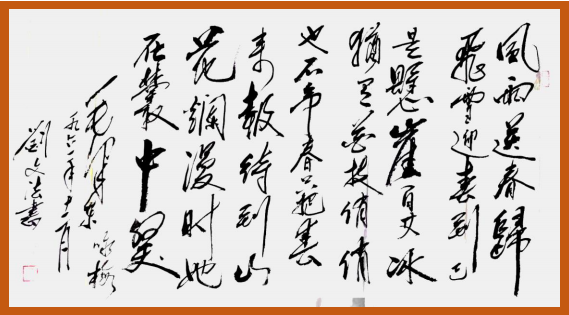 風雨送春歸
飛雪迎春到已
是懸崖百丈冰
猶有花枝俏俏
也不争春只把春
来報待到山
花爛漫时她
在叢中笑
毛澤東 咏梅
一九六一年十二月
劉文法書